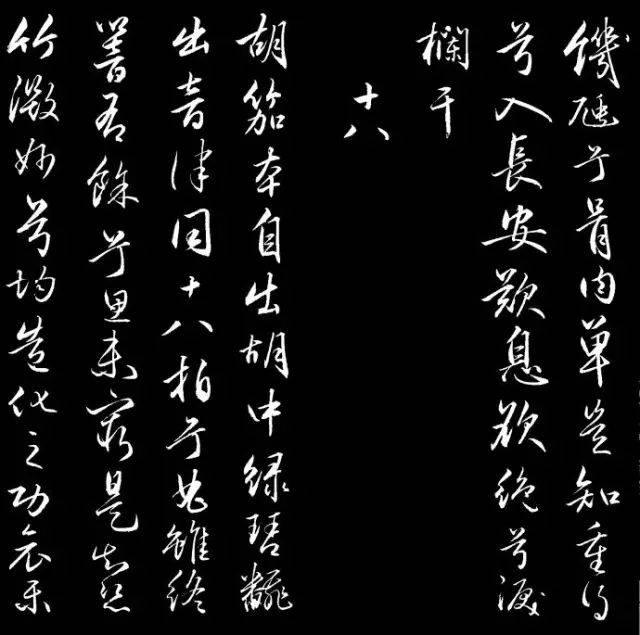 饑兮骨肉單豈知重得
兮入長安歎息欲絕兮淚
欄干
十八
胡笳本自出胡中緑琴翻
出音律同十八拍兮曲雖終
響有餘兮思未窮是知絲
竹微妙兮均造化之功哀樂